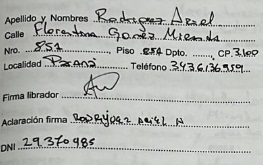 Apellido y Nombres Rodriguez Ariel
Calle Florentina Gomez Miranda
Nro. 851 Piso 851 Dpto. CP. 3100
Localidad Paraná Teléfono 3436136959
Firma librador
Aclaración firma RODRIGUEZ ARIEL N
DNI 29.370985